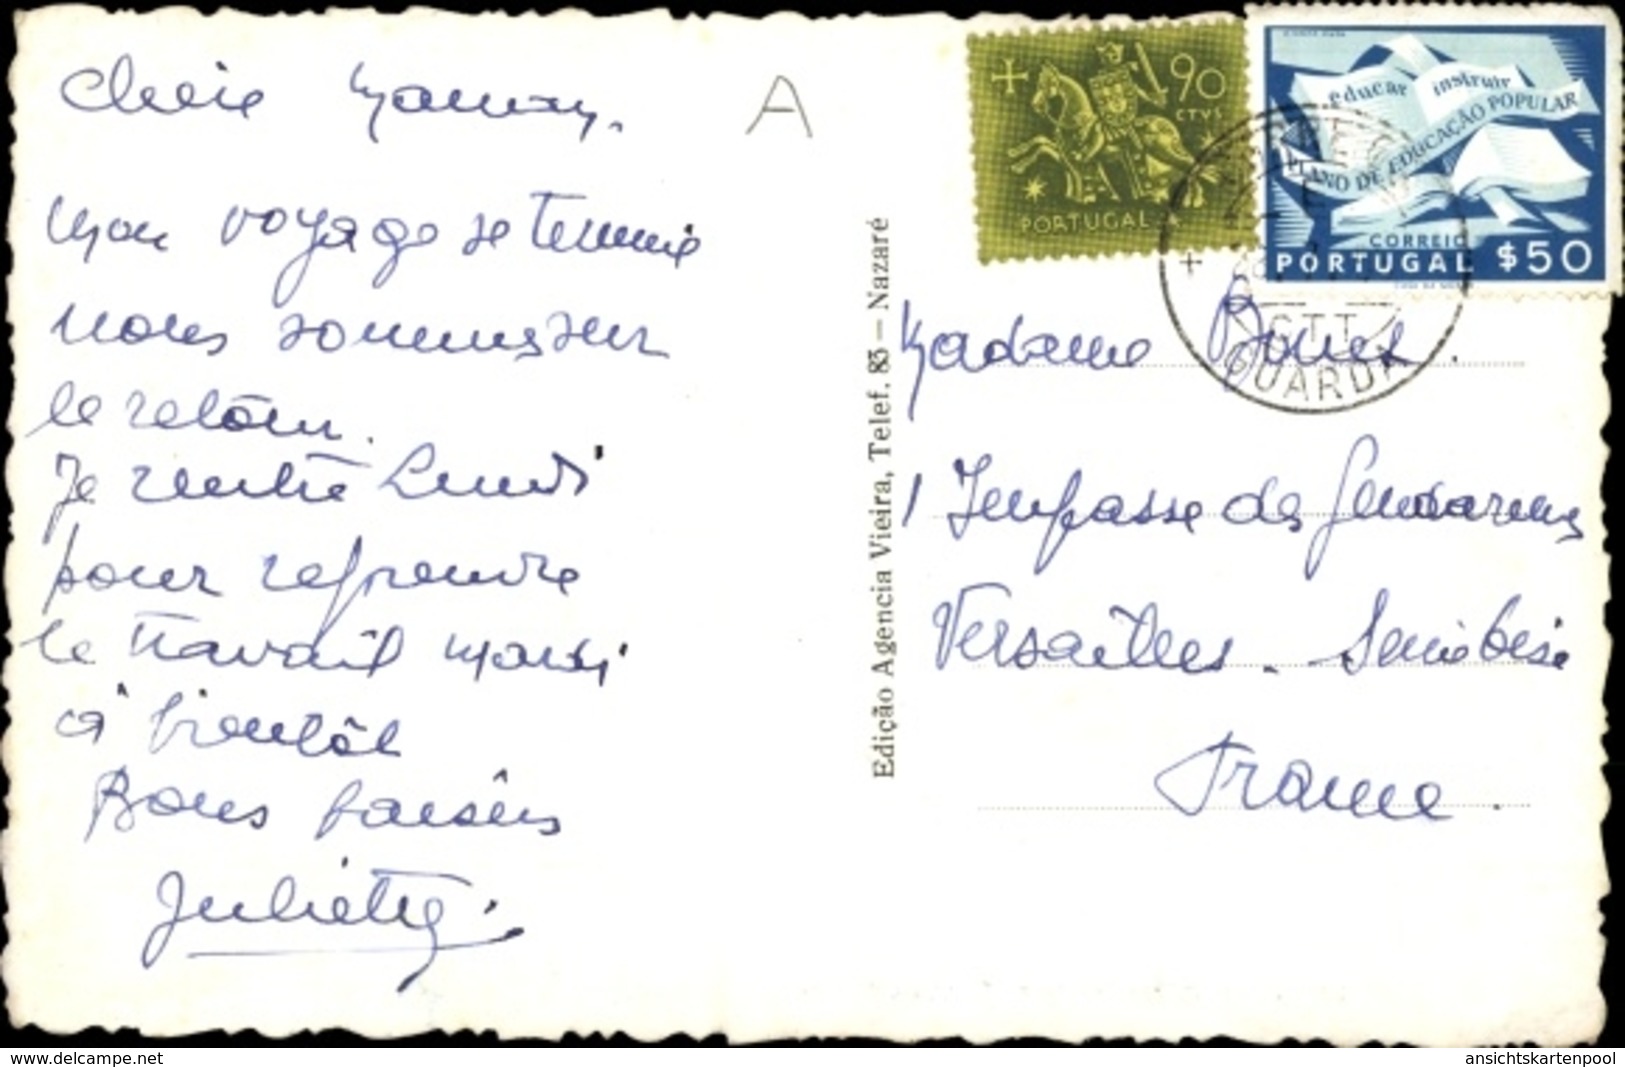 Chère Mamy.
A
Mon voyage se termine
nous sommes sur
le retour.
Je rentre Lundi
pour reprendre
le travail mardi
à bientôt
Bons baisers
Juliette.
Edição Agencia Vieira, Telef. 83 — Nazaré
90
CTVS
PORTUGAL
educar instruir
PLANO DE EDUCAÇÃO POPULAR
CORREIO
PORTUGAL $50
CTT
GUARDA
Madame
1 Impasse des Gendarmes
Versailles. Seine et Oise
France.
www.delcampe.net
ansichtskartenpool